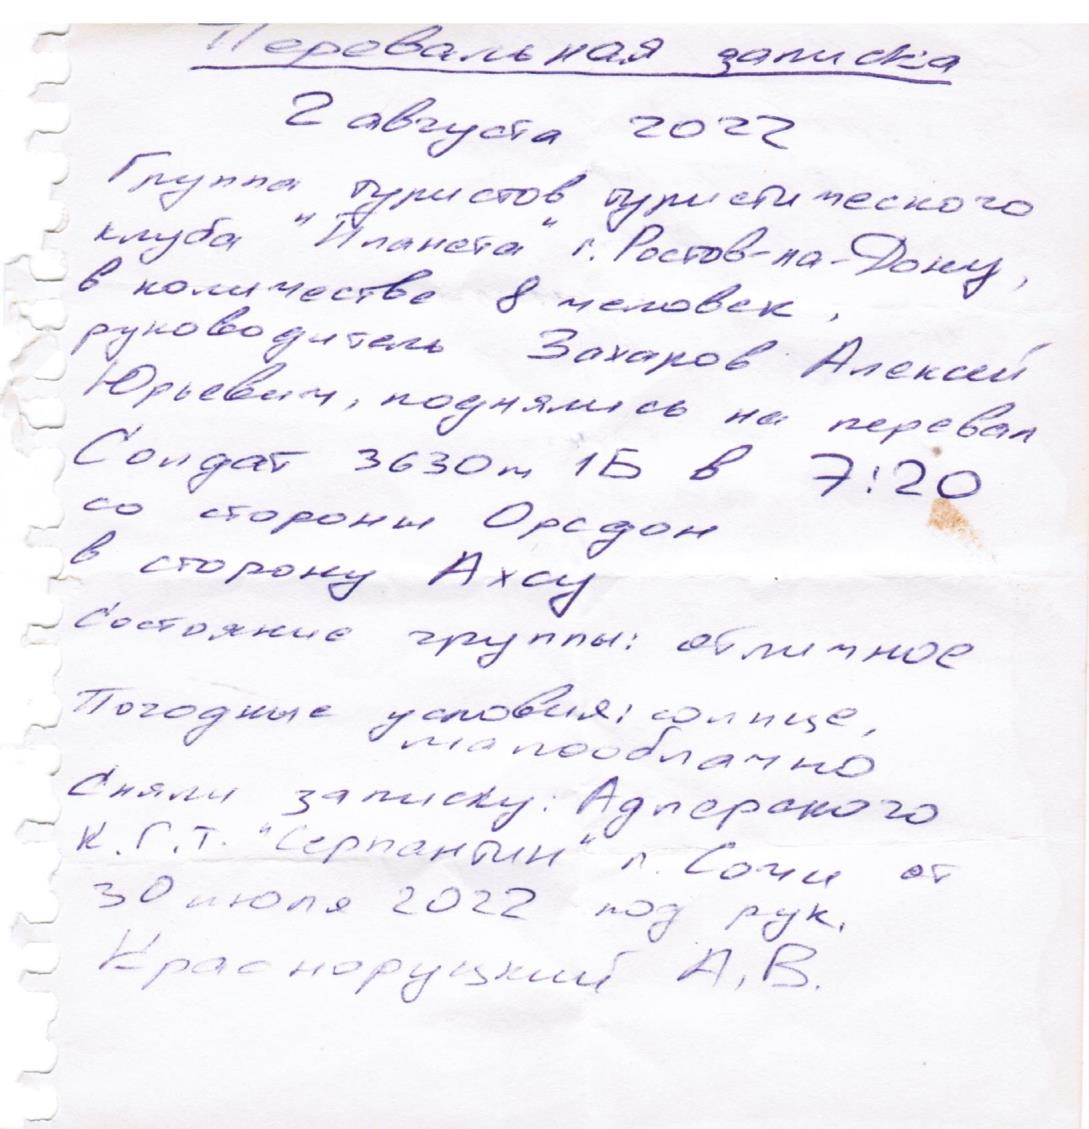 Перевальная записка
2 августа 2022
Группа туристов туристического
клуба "Планета" г. Ростов-на-Дону,
в количестве 8 человек,
руководитель Захаров Алексей
Юрьевич, поднялись на перевал
Солдат 3630м 1Б в 7:20
со стороны Орсдон
в сторону Ахсу
Состояние группы: отличное
Погодные условия: солнце,
малооблачно
Сняли записку: Адлерского
К.Г.Т. "Серпантин" г. Сочи от
30 июля 2022 под рук.
Красноруцкий А.В.